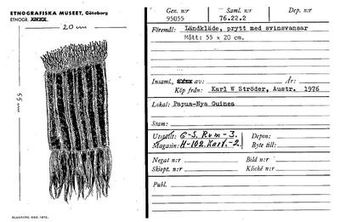 ETNOGRAFISKA MUSEET, Göteborg
ETNOGR.
20 cm
55
Gen. n:r
95055
Saml. n:r
76.22.2
Dep. n:r
Föremål: Ländkläde, prytt med svinsvansar
Mått: 55 x 20 cm.
Insaml. av: År:
Köp från: Karl W Ströder, Austr. 1976
Lokal: Papua-Nya Guinea
Utställt: G-S. Rum-3.
Magasin: H-102. Kart.-2.
Depon:
Byte till:
Negat n:r
Skiopt. n:r
Bild n:r
Kliché n:r
Publ.